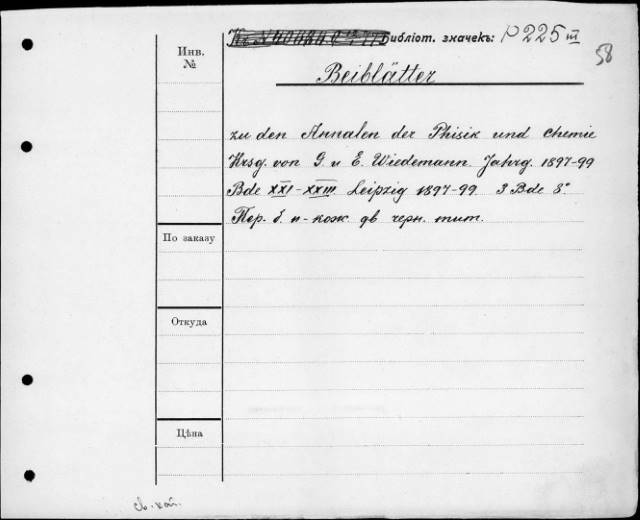 Библіот. значекъ: P 225 III
58
Инв.
№
Beiblätter
zu den Annalen der Phisik und Chemie
Hrsg. von G. u E. Wiedemann. Jahrg. 1897-99
Bde XXI-XXIII Leipzig 1897-99. 3 Bde 8°
Пер. б. п-кож. дв черн. тит.
По заказу
Откуда
Цѣна